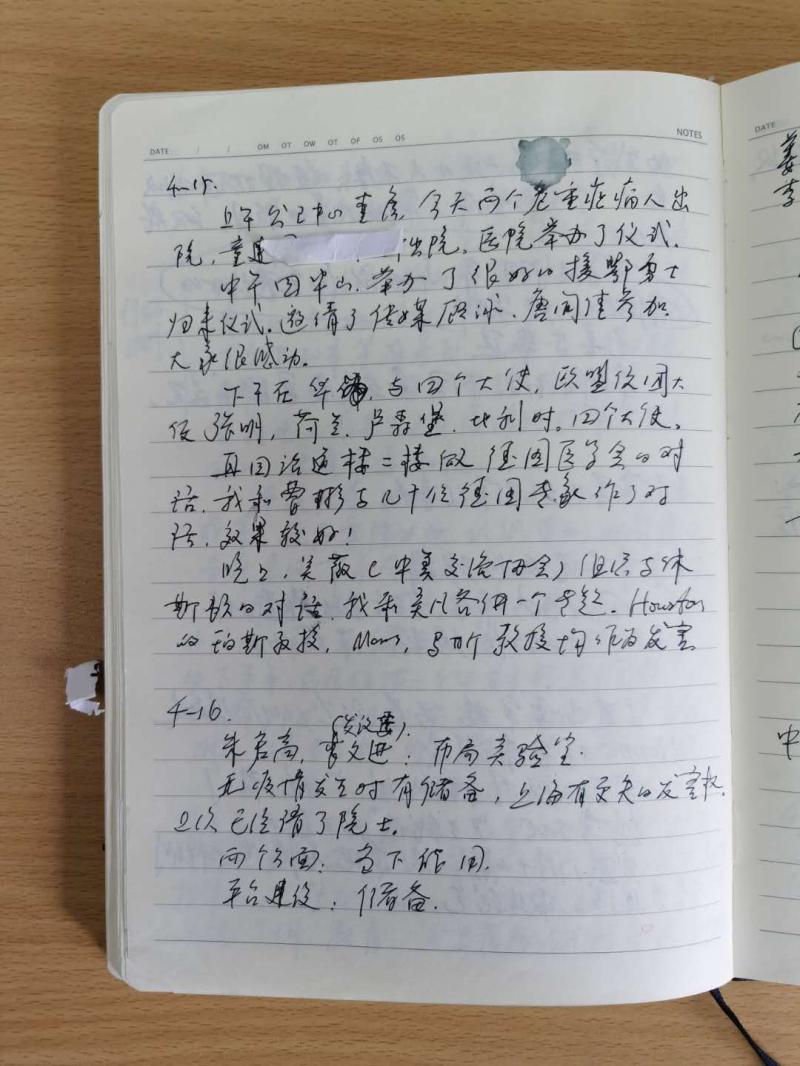 DATE / / OM OT OW OT OF OS OS NOTES
DATE
4-15.
上午公卫中心查房,今天两个危重症病人出
院,童建 出院。医院举办了仪式。
中午回华山,举办了很好的接鄂勇士
归来仪式。邀请了传媒 唐闻佳参加。
大家很感动。
下午在华 与四个大使,欧盟使团大
使张明,荷兰、卢森堡、比利时。四个大使。
再回 楼二楼做德国医学会的对
话,我和曹彬与几十位德国专家作了对
话,效果较好!
晚上,吴 (中美交流协会)组织与休
斯敦的对话,我和 各作一个专题。Houston
的 斯教授, 教授均作为发言
4-16
朱 高,李文进: 布局实验室.
(发改委)
无疫情发生时有储备,上海有更大的发 权.
上次已经请了院士。
两个方面:当下能用.
平台建设:储备.
姜
李
中